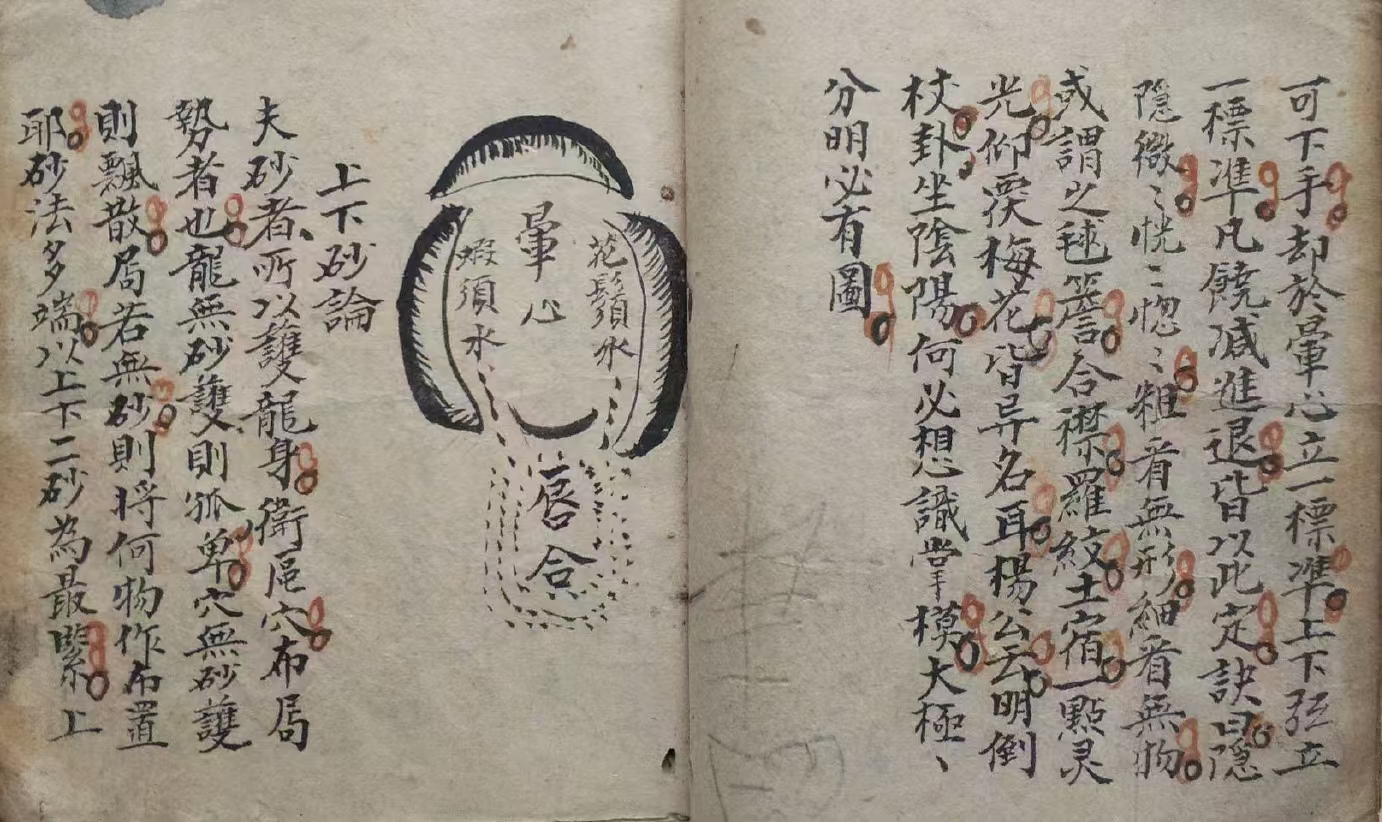 可下手却於暈心立一標準上下弦立
一標準凡饒减進退皆以此定訣曰隱
隱微〻恍〻惚〻粗看無形細看無物
或謂之毬簷合襟羅紋土宿一點灵
光仰覆梅花皆异名耳楊公云明倒
杖卦坐陰陽何必想識掌模大極〻
分明必有圖
花鬚水
暈心
蝦須水
唇合
上下砂論
夫砂者所以護龍身衛區穴布局
勢者也龍無砂護則孤單穴無砂護
則飄散局若無砂則将何物作布置
耶砂法多端以上下二砂為最緊上